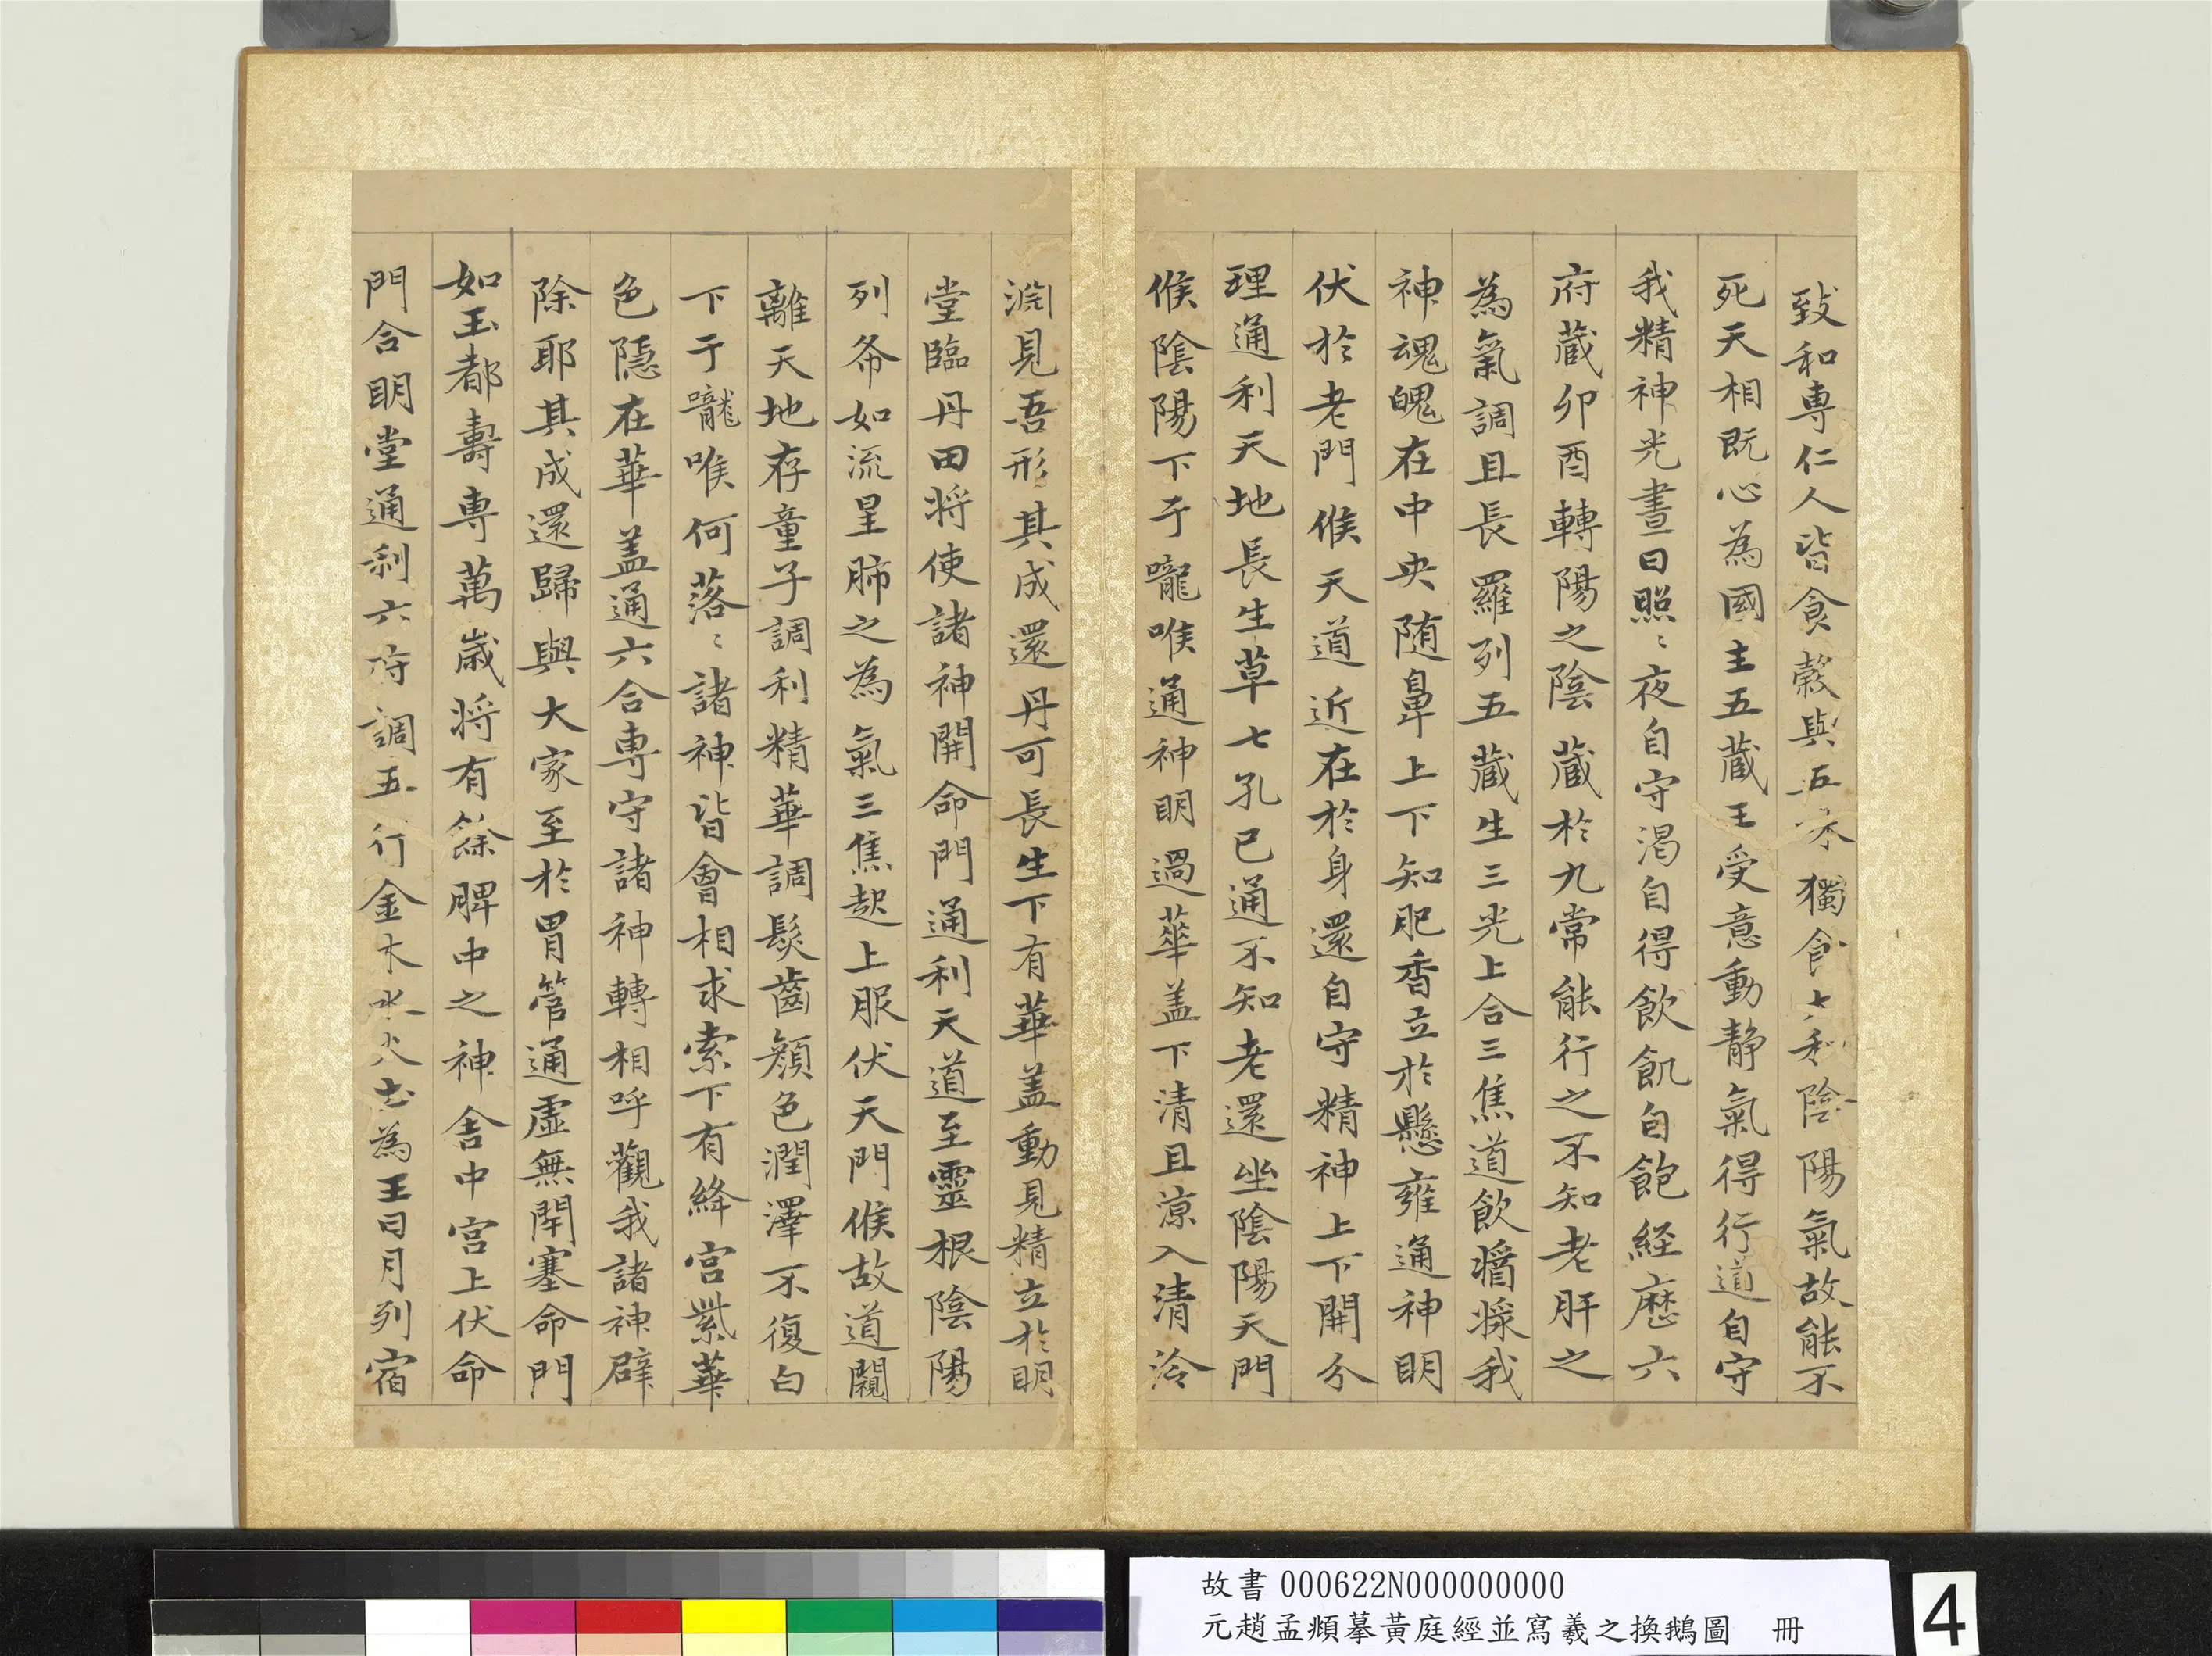 致和專仁人皆食穀與五味獨食太和陰陽氣故能不
死天相既心為國主五藏王受意動靜氣得行道自守
我精神光晝日照〻夜自守渴自得飲飢自飽経歷六
府藏卯酉轉陽之陰藏於九常能行之不知老肝之
為氣調且長羅列五藏生三光上合三焦道飲醬漿我
神魂魄在中央随鼻上下知肥香立於懸雍通神明
伏於老門候天道近在於身還自守精神上下開分
理通利天地長生草七孔已通不知老還坐陰陽天門
候陰陽下于嚨喉通神明過華盖下清且涼入清泠
淵見吾形其成還丹可長生下有華盖動見精立於明
堂臨丹田将使諸神開命門通利天道至靈根陰陽
列希如流星肺之為氣三焦起上服伏天門候故道闚
離天地存童子調利精華調髮齒顔色潤澤不復白
下于嚨喉何落〻諸神皆會相求索下有絳宮紫華
色隱在華盖通六合専守諸神轉相呼觀我諸神辟
除耶其成還歸與大家至於胃管通虛無閉塞命門
如玉都壽専萬歲将有餘脾中之神舍中宮上伏命
門合明堂通利六府調五行金木水火土為王日月列宿
故書 000622N000000000
元趙孟頫摹黃庭經並寫羲之換鵝圖 冊
4